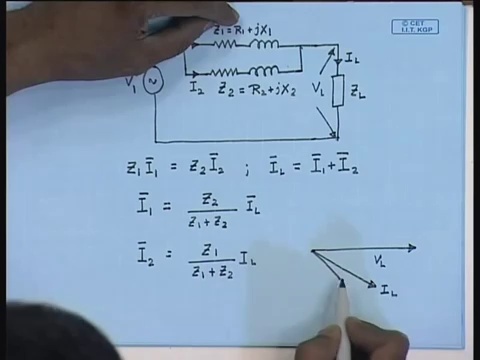 © CET
I.I.T. KGP
Z1 = R1 + jX1
I2
Z2 = R2 + jX2
V1
VL
IL
ZL
Z1 Ī1 = Z2 Ī2 ; ĪL = Ī1 + Ī2
Ī1 = Z2 / (Z1 + Z2) ĪL
Ī2 = Z1 / (Z1 + Z2) IL
VL
IL